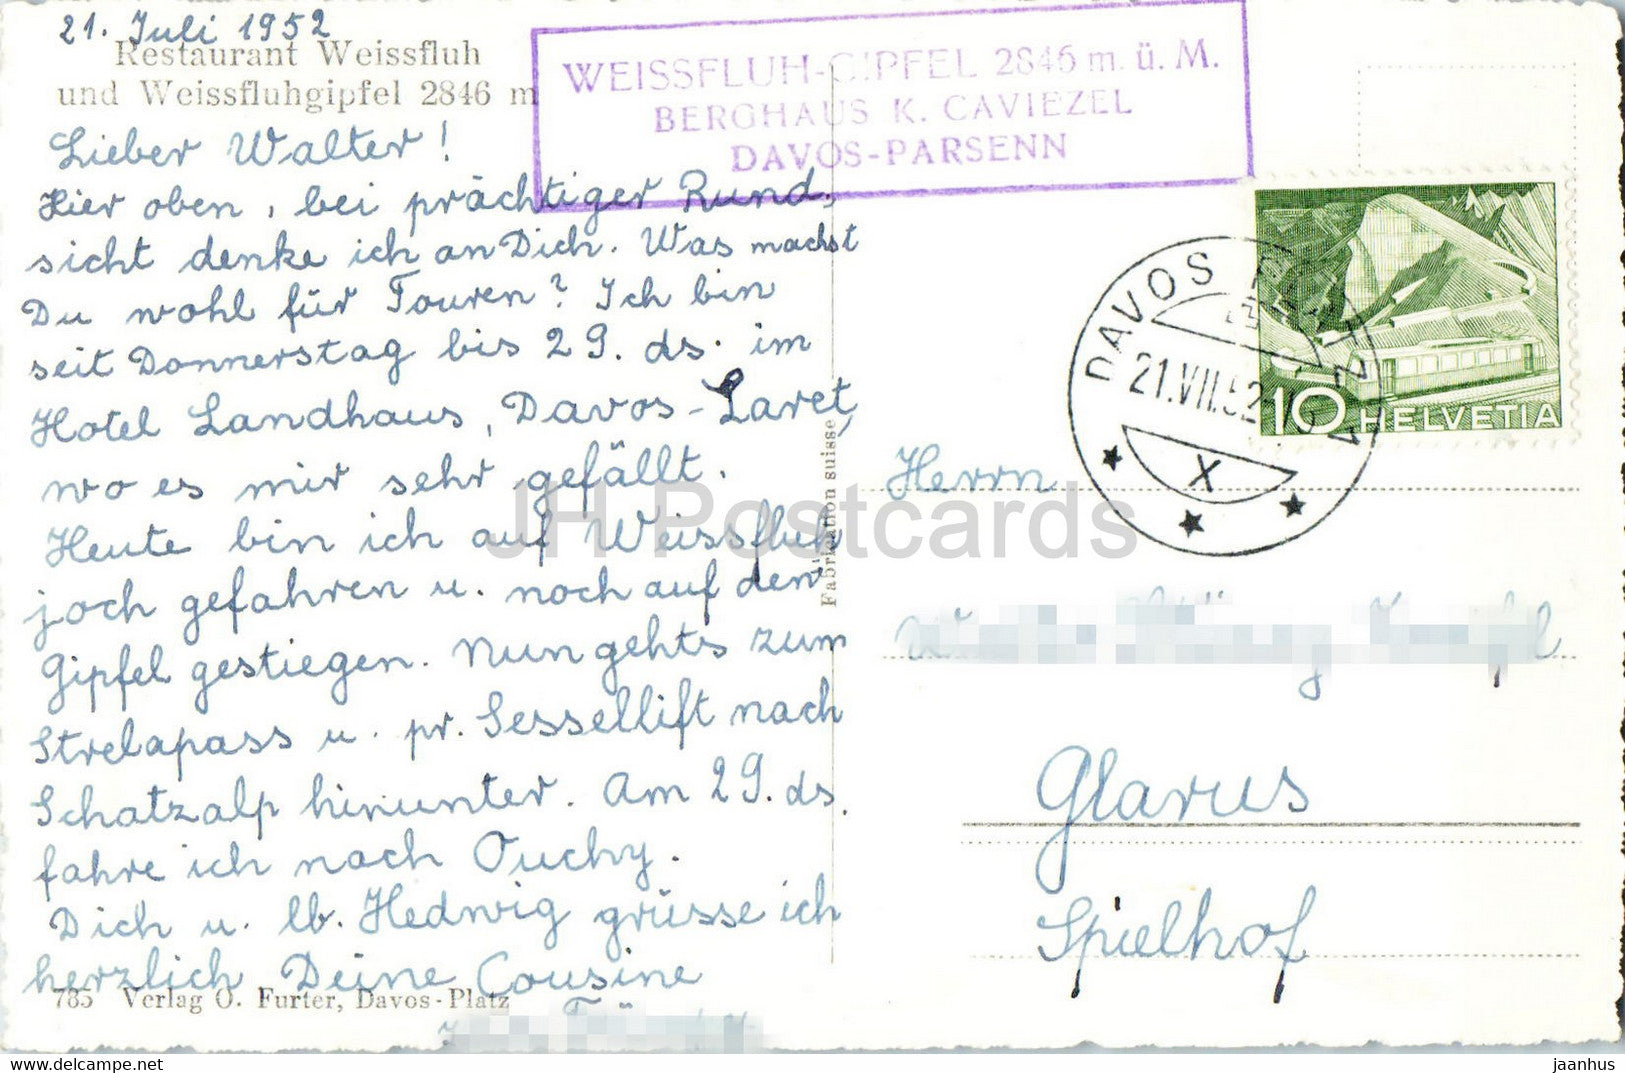 21. Juli 1952
Restaurant Weissfluh
und Weissfluhgipfel 2846 m
Lieber Walter!
Hier oben, bei prächtiger Rund-
sicht denke ich an Dich. Was machst
Du wohl für Touren? Ich bin
seit Donnerstag bis 29. ds. im
Hotel Landhaus, Davos-Laret,
wo es mir sehr gefällt.
Heute bin ich auf Weissfluh
joch gefahren u. noch auf den
Gipfel gestiegen. Nun gehts zum
Strelapass u. pr. Sessellift nach
Schatzalp hinunter. Am 29. ds.
fahre ich nach Ouchy.
Dich u. lb. Hedwig grüsse ich
herzlich Deine Cousine
785 Verlag O. Furter, Davos-Platz
WEISSFLUH-GIPFEL 2846 m. ü. M.
BERGHAUS K. CAVIEZEL
DAVOS-PARSENN
Fabrication suisse
DAVOS PLATZ
21.VII.52
X
10 HELVETIA
Herrn
Glarus
Spielhof
JH Postcards
hippostcard.net
jaanhus